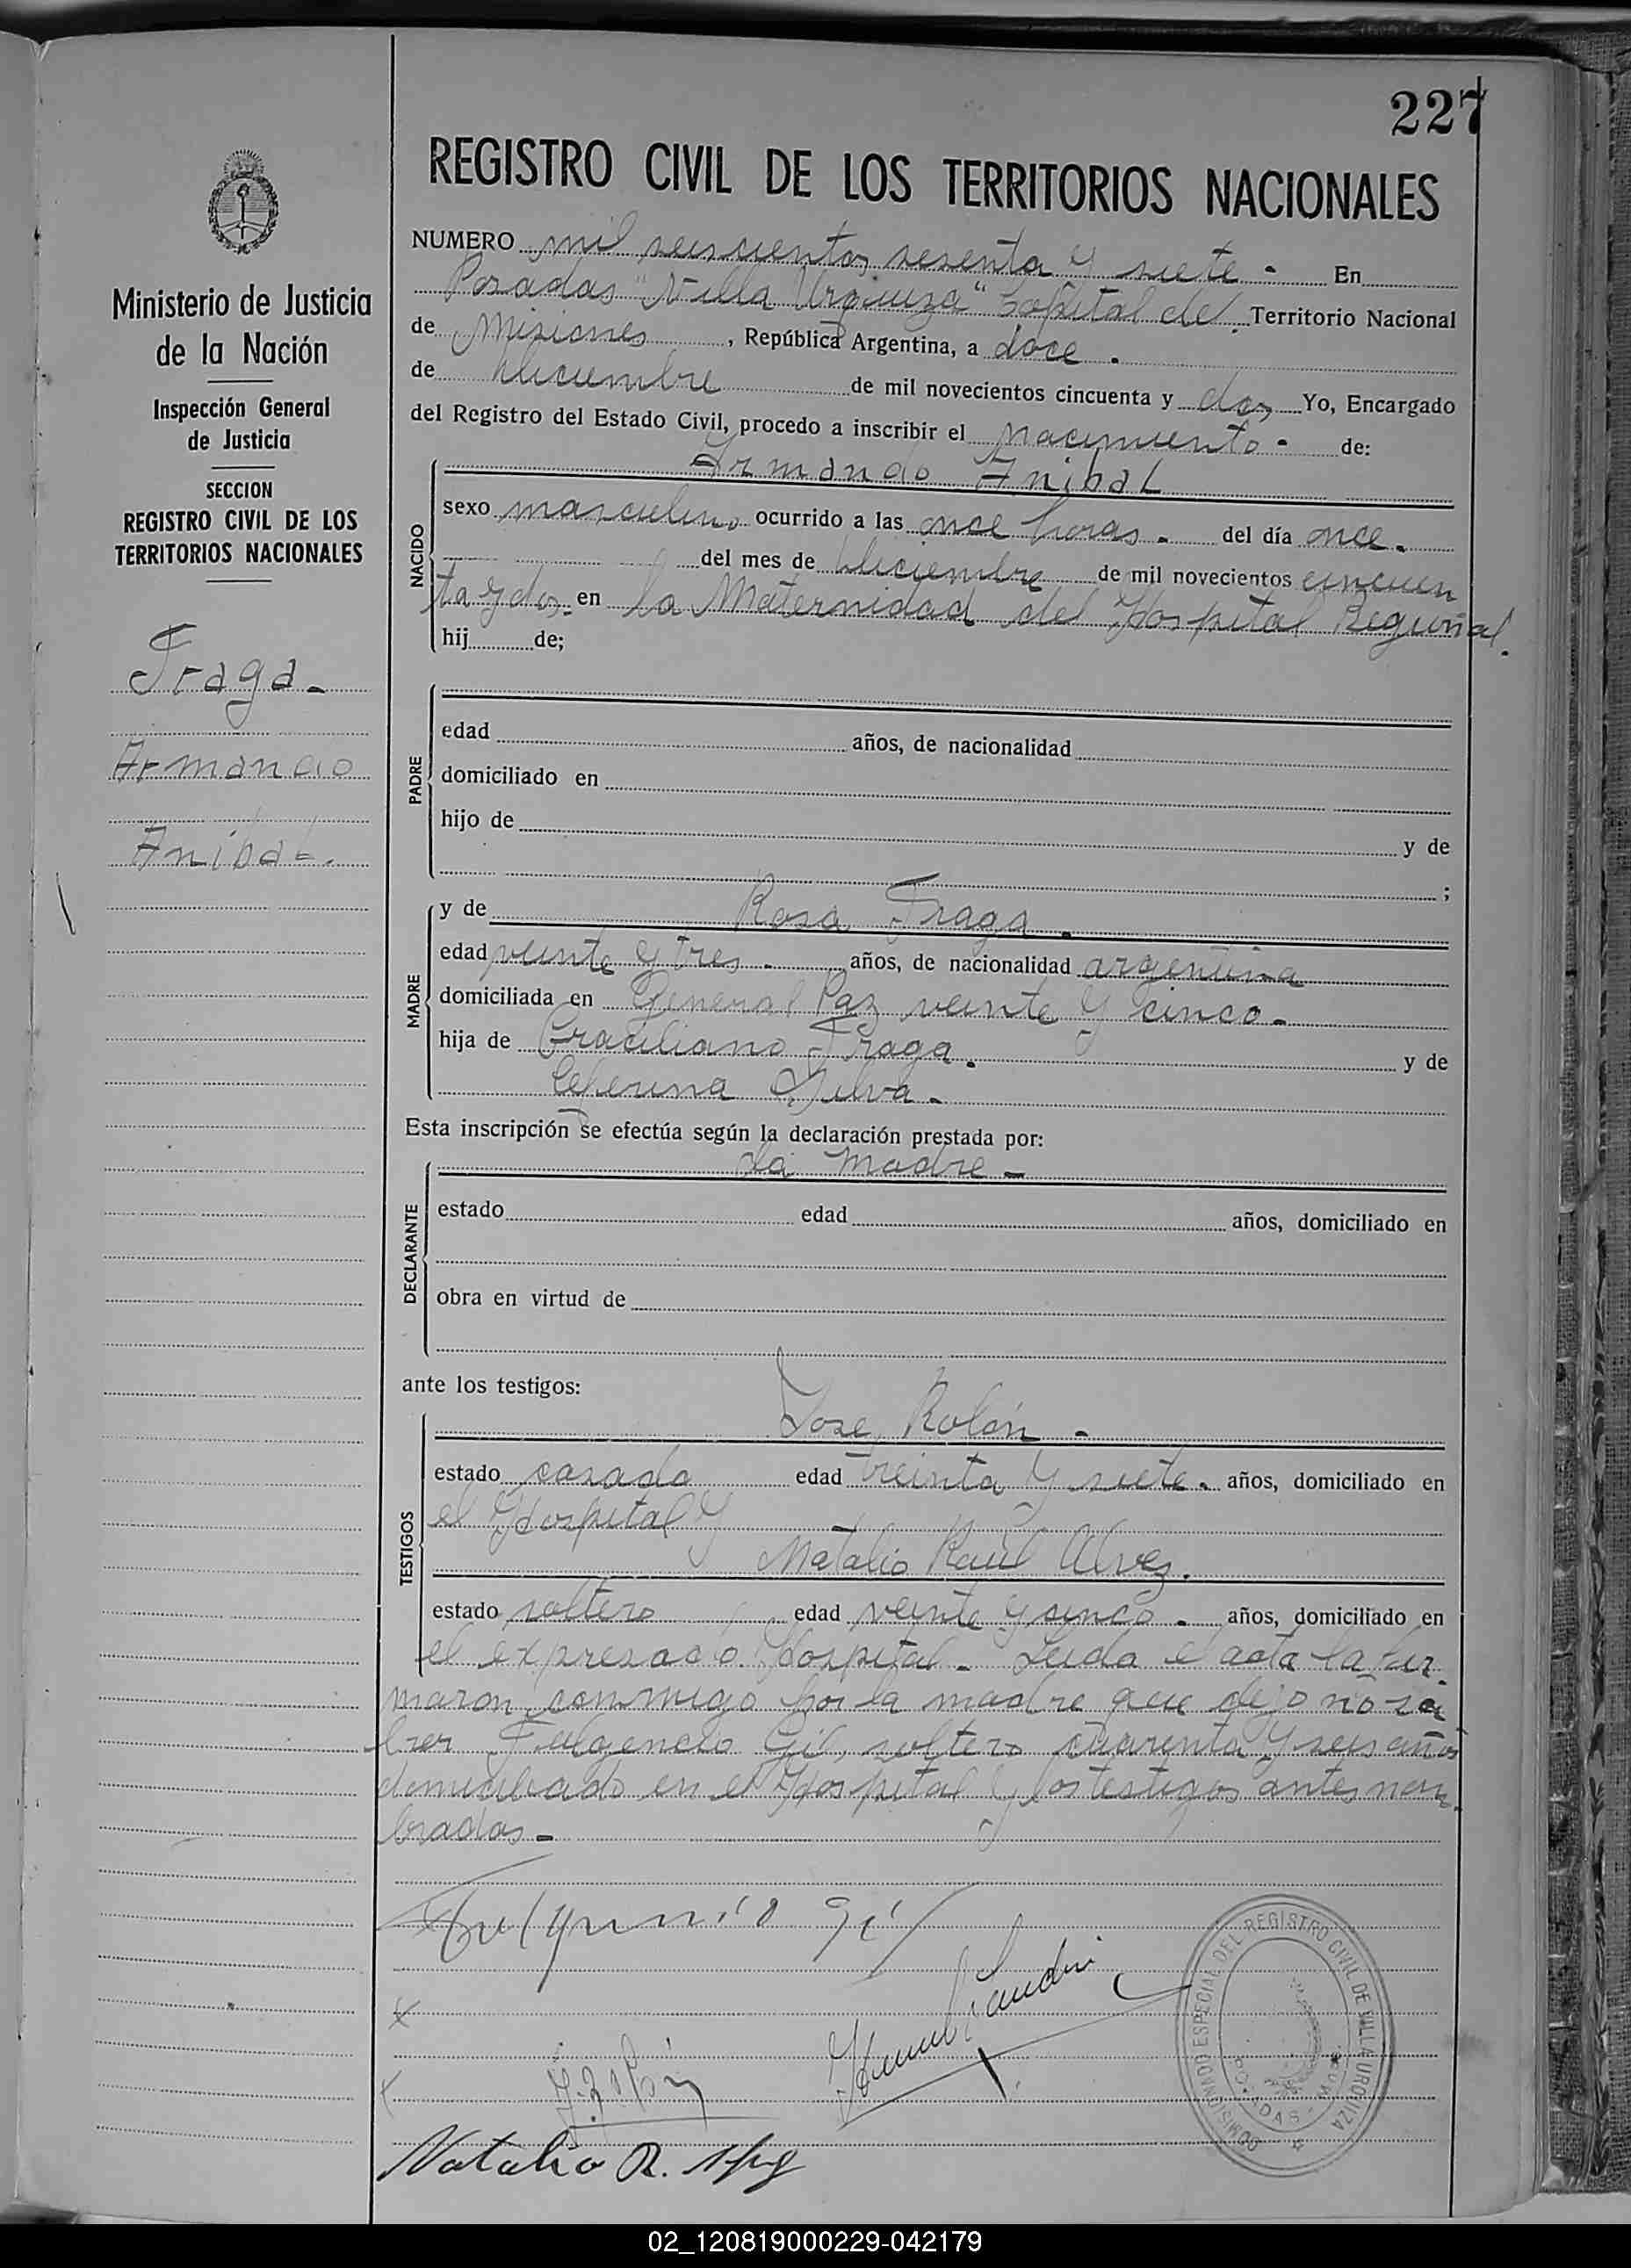 227
REGISTRO CIVIL DE LOS TERRITORIOS NACIONALES
Ministerio de Justicia
de la Nación
Inspección General
de Justicia
SECCION
REGISTRO CIVIL DE LOS
TERRITORIOS NACIONALES
Fraga.
Armando
Anibal.
NUMERO mil seiscientos sesenta y siete - En
Posadas "Villa Urquiza" Capital del Territorio Nacional
de Misiones, República Argentina, a doce.
de Diciembre de mil novecientos cincuenta y dos Yo, Encargado
del Registro del Estado Civil, procedo a inscribir el nacimiento - de:
Armando Anibal
NACIDO
sexo masculino ocurrido a las once horas - del día once.
del mes de Diciembre de mil novecientos cincuen
ta y dos. en la Maternidad del Hospital Regional.
hij de;
PADRE
edad años, de nacionalidad
domiciliado en
hijo de y de
;
MADRE
y de Rosa Fraga.
edad veinte y tres - años, de nacionalidad argentina
domiciliada en General Paz veinte y cinco -
hija de Graciliano Fraga. y de
Ceferina Silva -
Esta inscripción se efectúa según la declaración prestada por:
la madre -
DECLARANTE
estado edad años, domiciliado en
obra en virtud de
ante los testigos:
TESTIGOS
Jose Rolón -
estado casado edad treinta y siete. años, domiciliado en
el Hospital y
Natalio Raul Alvez.
estado soltero edad veinte y sinco - años, domiciliado en
el expresado Hospital - Leida el acta la fir
maron conmigo por la madre que dijo no sa
ber Fulgencio Gil, soltero cuarenta y seis años
domiciliado en el Hospital y los testigos antes nom
brados -
Fulgencio Gil
J. Rolón
Natalio R. Alvez
COMISIONADO ESPECIAL DEL REGISTRO CIVIL DE VILLA URQUIZA
POSADAS - Mnes.
02_120819000229-042179